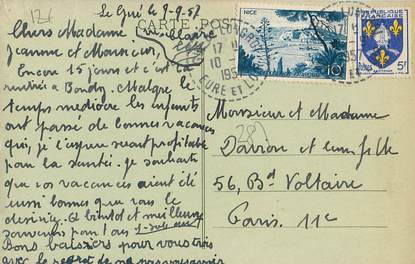 121
Le Gué le 9-9-57
CARTE POSTALE
Chers Madame
Jeanne et Monsieur,
Encore 15 jours et c'est la
rentrée à Bondy. Malgré le
temps médiocre les enfants
ont passé de bonnes vacances
qui, je l'espère seront profitables
pour la santé. Je souhaite
que vos vacances aient été
aussi bonnes que vous le
désiriez. A bientôt et meilleurs
souvenirs pour tous
Bons baisers pour vous trois
avec le regret de ne pas
17 H
10
195
EURE ET L
NICE
10F
RÉPUBLIQUE
FRANÇAISE
5F
Monsieur et Madame
28
Davion et leur fille
56, Bd Voltaire
Paris. 11e